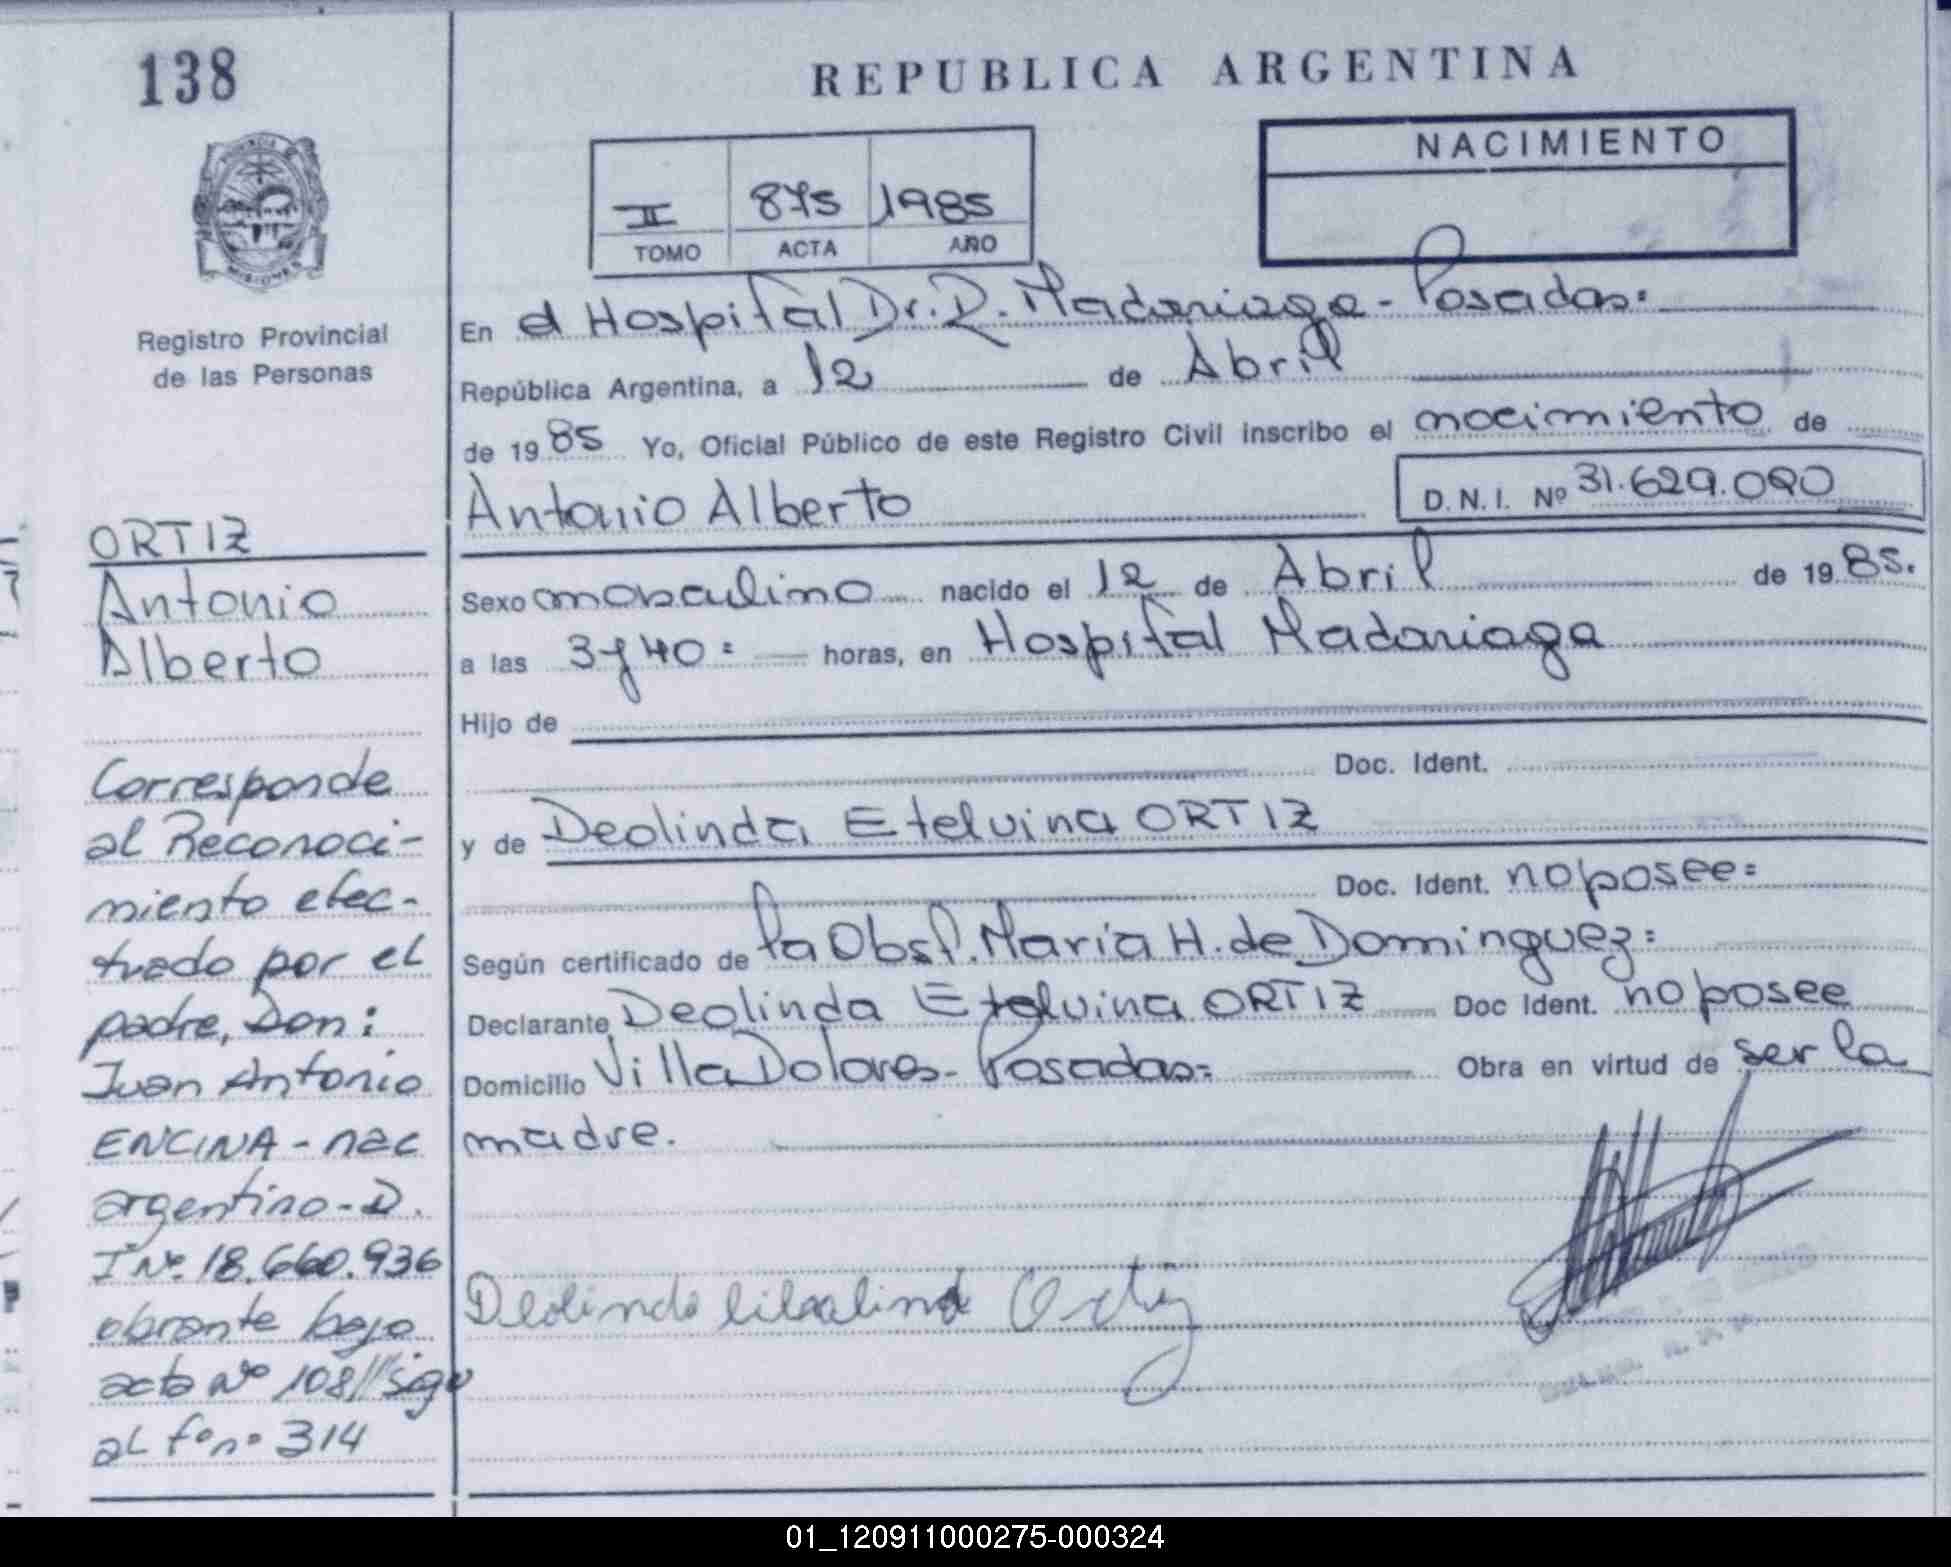 138
REPUBLICA ARGENTINA
NACIMIENTO
II 875 1985
TOMO ACTA AÑO
PROVINCIA DE
MISIONES
Registro Provincial
de las Personas
En el Hospital Dr. R. Madariaga - Posadas=
República Argentina, a 12 de Abril
de 1985 Yo, Oficial Público de este Registro Civil inscribo el nacimiento de
Antonio Alberto D.N.I. Nº 31.629.090
ORTIZ
Antonio
Alberto
Sexo masculino nacido el 12 de Abril de 1985.
a las 3 y 40= horas, en Hospital Madariaga
Hijo de
Doc. Ident.
y de Deolinda Etelvina ORTIZ
Doc. Ident. no posee=
Según certificado de la Obst. Maria H. de Dominguez=
Declarante Deolinda Etelvina ORTIZ Doc Ident. no posee
Domicilio Villa Dolores - Posadas= Obra en virtud de ser la
madre.
Corresponde
al Reconoci-
miento efec-
tuado por el
padre, Don:
Juan Antonio
ENCINA - nac
argentino - D.
I Nº. 18.660.936
obrante bajo
acta Nº 108//
al fº nº 314
Deolinda Ortiz
01_120911000275-000324